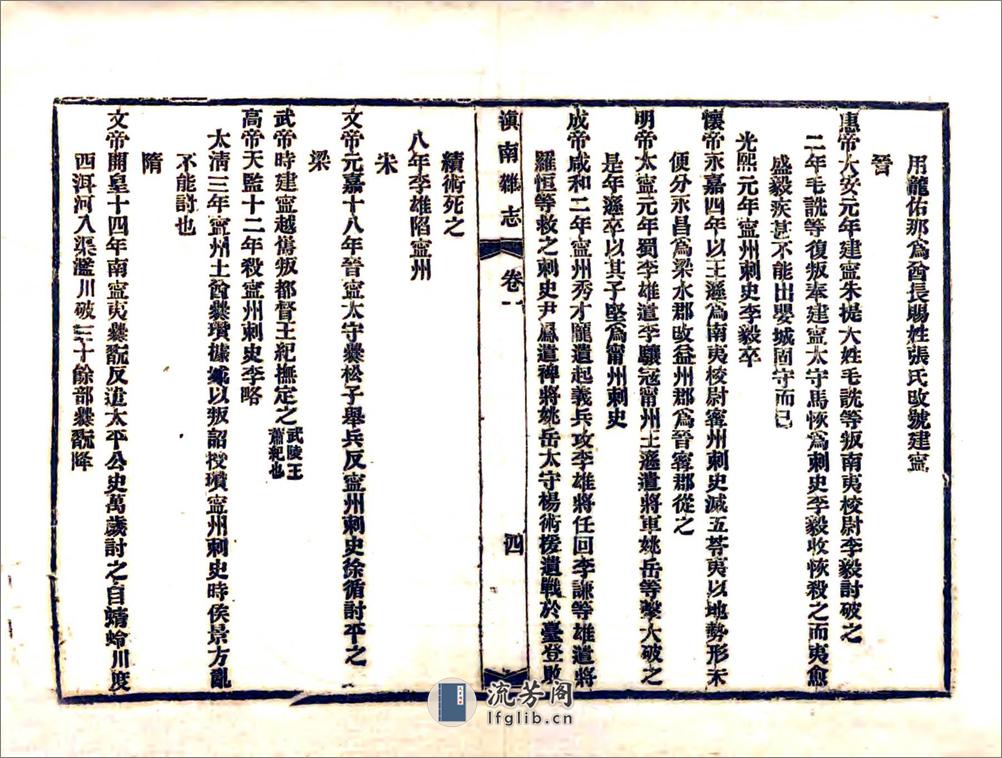 用龍佑那爲酋長賜姓張氏改號建寧
晉
惠帝大安元年建寧朱提大姓毛詵等叛南夷校尉李毅討破之
二年毛詵等復叛奉建寧太守馬恢爲刺史李毅收恢殺之而夷愈
盛毅疾甚不能出嬰城固守而已
光熙元年寧州刺史李毅卒
懷帝永嘉四年以王遜爲南夷校尉寗州刺史滅五苓夷以地勢形未
便分永昌爲梁水郡改益州郡爲晉寗郡從之
明帝太寧元年蜀李雄遣李驤寇甯州王遜遣將軍姚岳等擊大破之
是年遜卒以其子堅爲甯州刺史
成帝咸和二年寧州秀才龎遺起義兵攻李雄將任回李謙等雄遣將
羅恒等救之刺史尹鳳遣裨將姚岳太守楊術援遺戰於臺登敗
滇南雜志
卷一
四
績術死之
八年李雄陷寧州
宋
文帝元嘉十八年晉寧太守爨松子舉兵反寧州刺史徐循討平之
梁
武帝時建寧越嶲叛都督王紀撫定之武陵王蕭紀也
高帝天監十二年殺寧州刺史李略
太淸三年寧州土酋爨瓚據城以叛詔授瓚寧州刺史時侯景方亂
不能討也
隋
文帝開皇十四年南寧夷爨翫反遣太平公史萬歲討之自蜻蛉川度
四洱河入渠濫川破三十餘部爨翫降
流芳阁
lfglib.cn